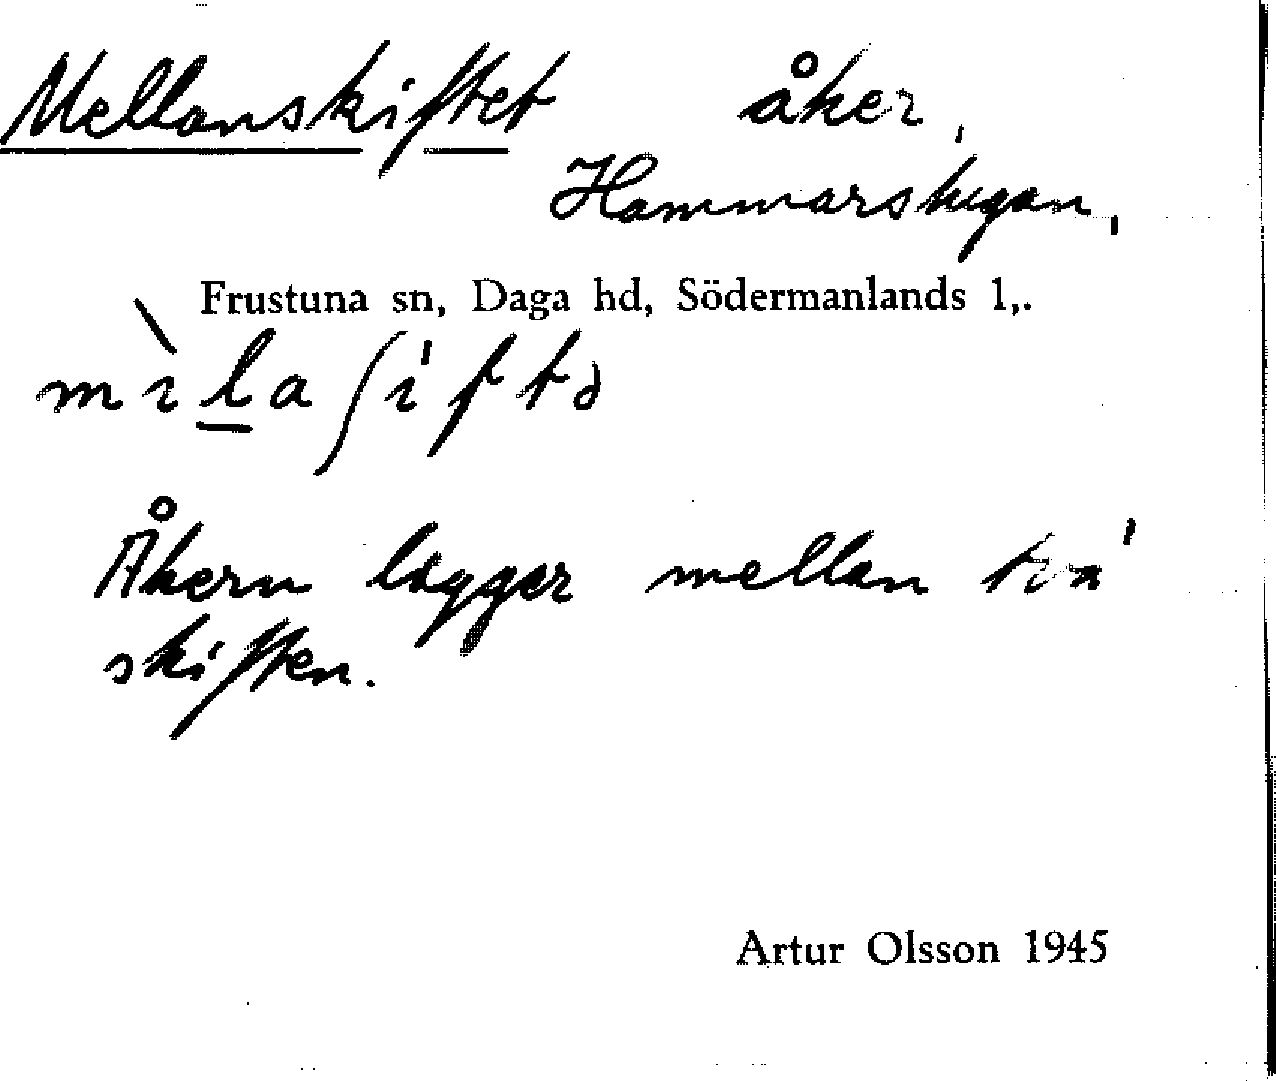 Mellanskiftet åker,
Hammarstugan,
Frustuna sn, Daga hd, Södermanlands l,.
Åkern lägger mellan två
skiften.
Artur Olsson 1945